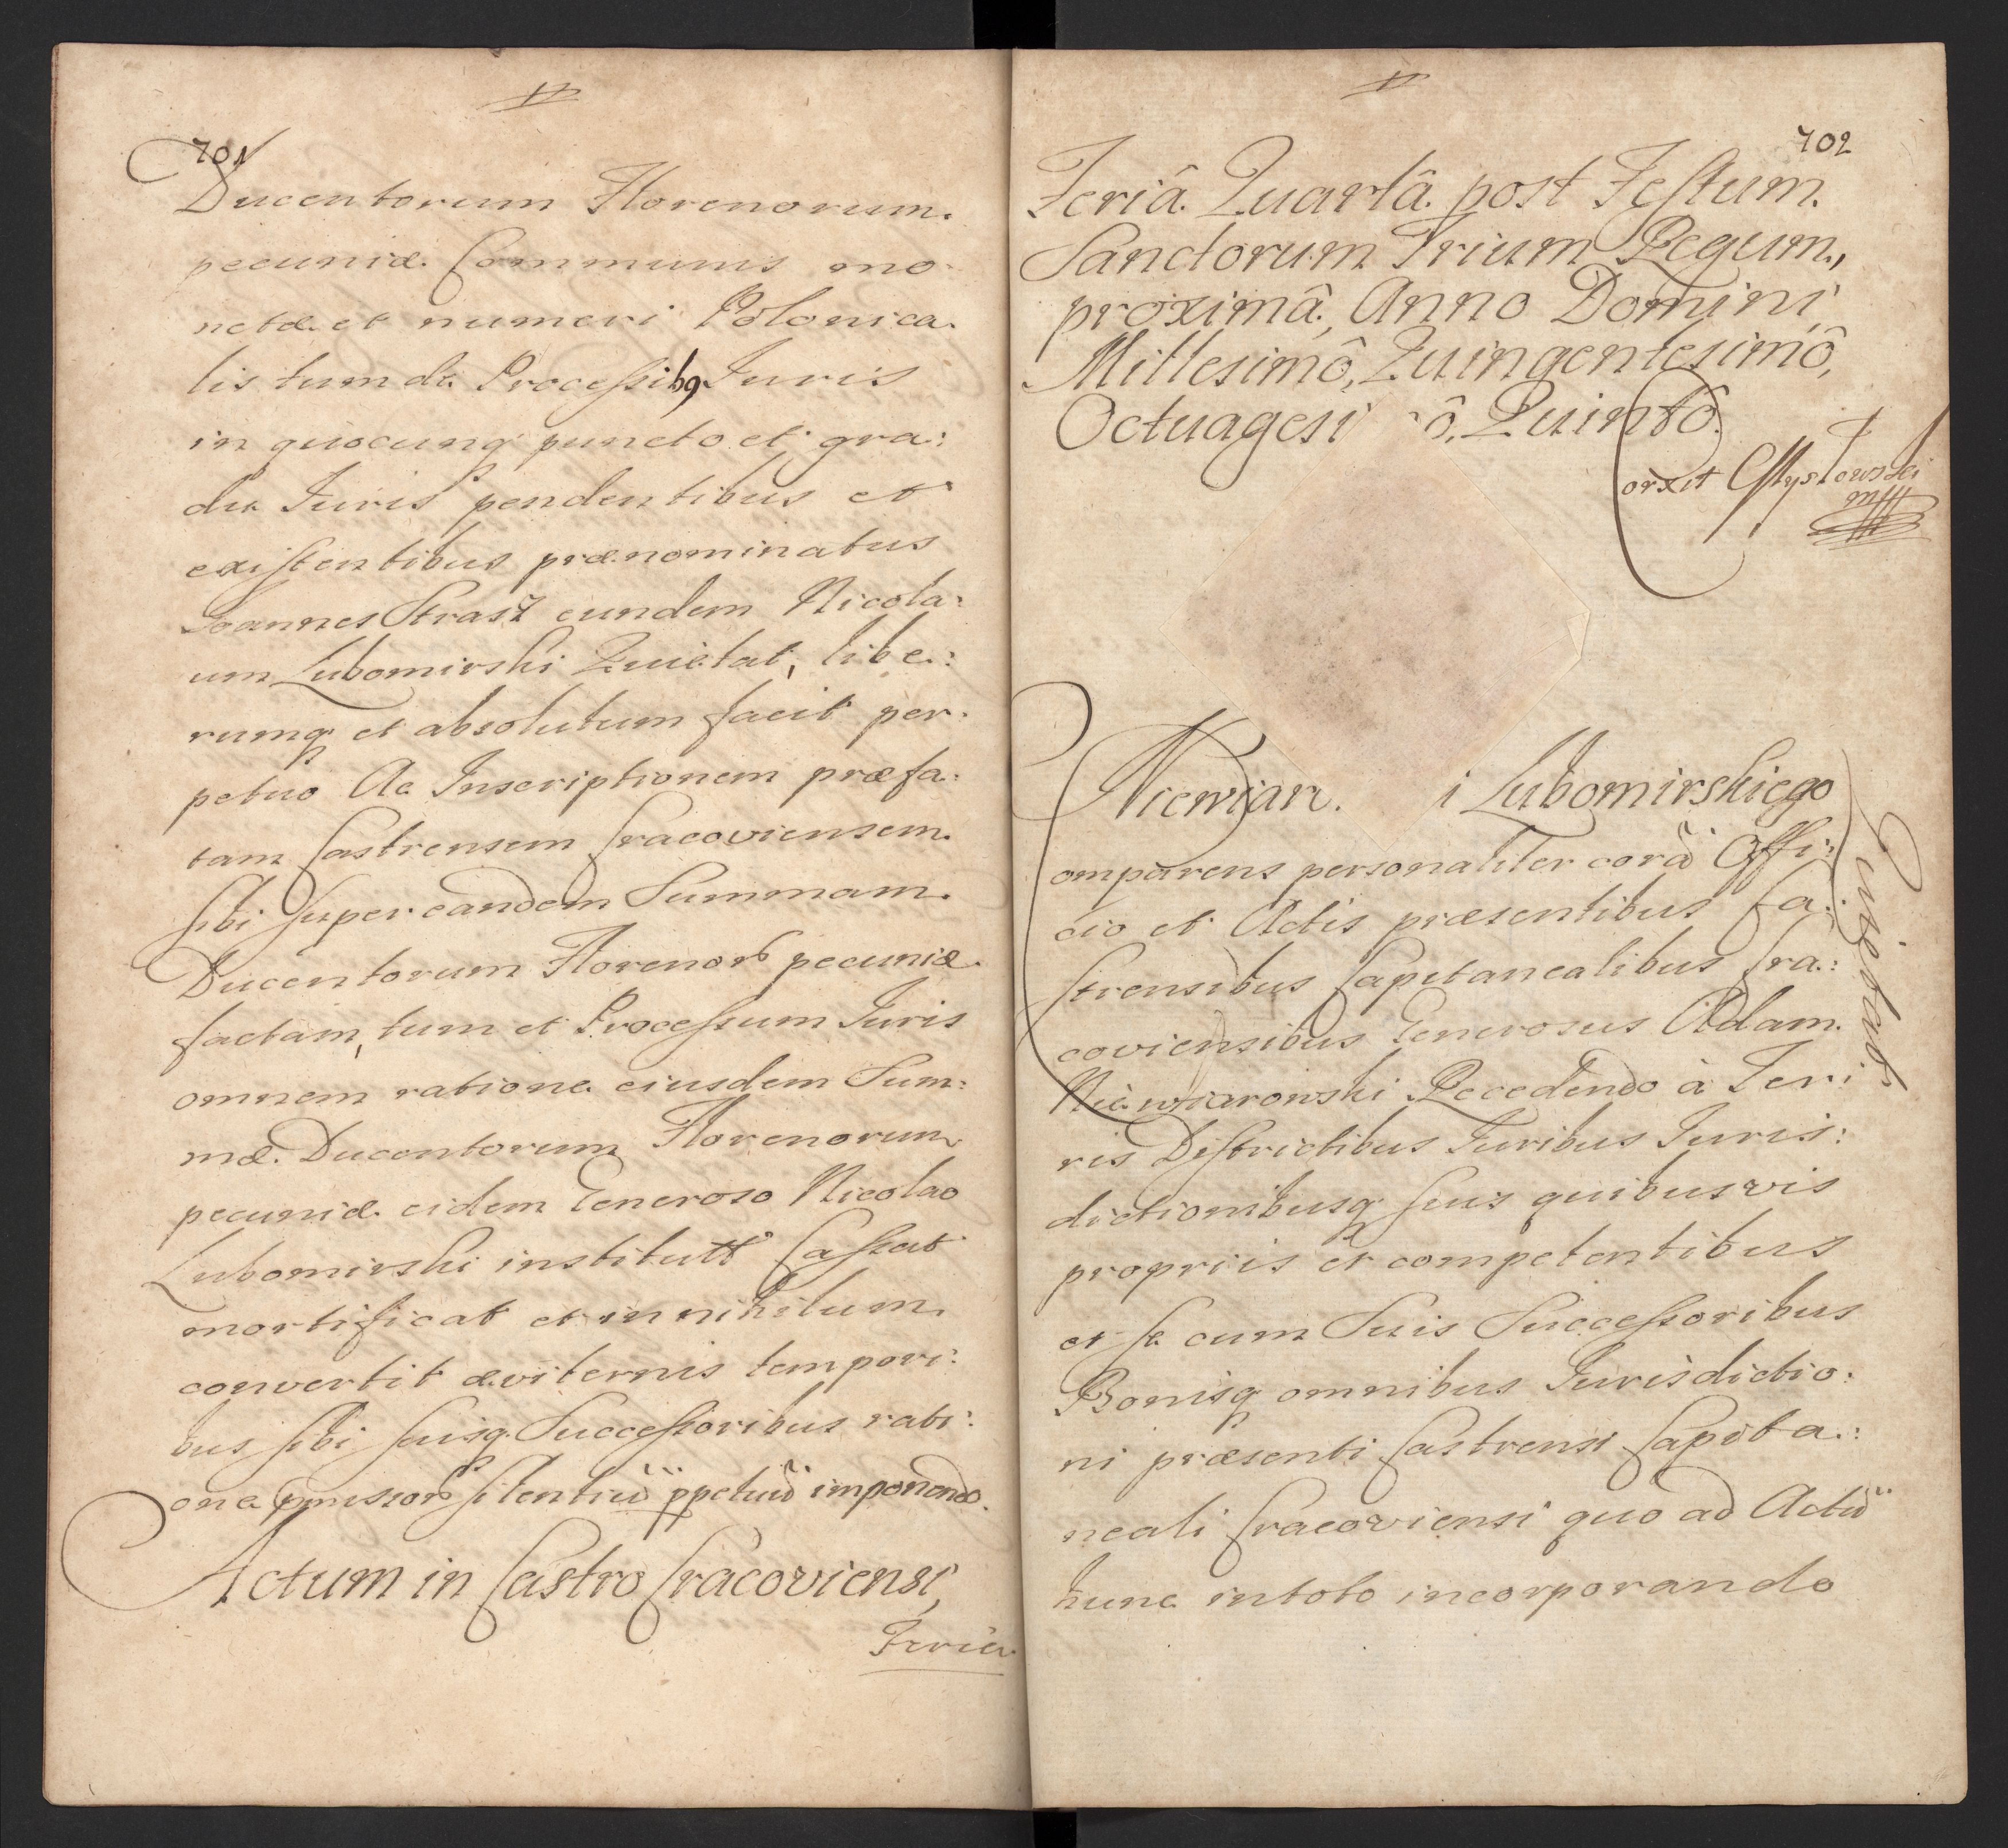 701
Ducentorum Florenorum
pecuniæ Communis mo
netæ et numeri Polonica
lis tum de Processibq Juris
in quocunq puncto et gra:
du Juris pendentibus et
existentibus prænominatus
Joannes Strasz eundem Nicola:
um Lubomirski Quietat, libe:
rumq et absolutum facit per:
petuo Ac Inscriptionem præfa:
tam Castrensem Cracoviensem
sibi super eandem Summam
Ducentorum Florenor pecuniæ
factam, tum et Processum Juris
omnem ratione eiusdem Sum:
mæ Ducentorum Florenorum
pecuniæ eidem Generoso Nicolao
Lubomirski institutt Cassat
mortificat et in nihilum
convertit æviternis tempori:
bus sibi suisq Successoribus rati:
one pmissor silentiũ ppetuũ imponendo.
Actum in Castro Cracoviensi,
Feria
702
Feriâ Quartâ post Festum
Sanctorum Trium Regum,
proximâ, Anno Domini
Millesimô, Quingentesimô,
Octuagesi ô, Quintô.
orxit
Niewiar. i Lubomirskiego
Quietat
omparens personaliter corã Offi:
cio et Actis præsentibus Ca:
strensibus Capitanealibus Cra:
coviensibus Generosus Adam
Niewiarowski Recedendo à Ter:
ris Districtibus Juribus Juris:
dictionibusq suis quibusvis
propriis et competentibus
et se cum Suis Successoribus
Bonisq omnibus Jurisdictio:
ni præsenti Castrensi Capita:
neali Cracoviensi quo ad Actũ
hunc in toto incorporando